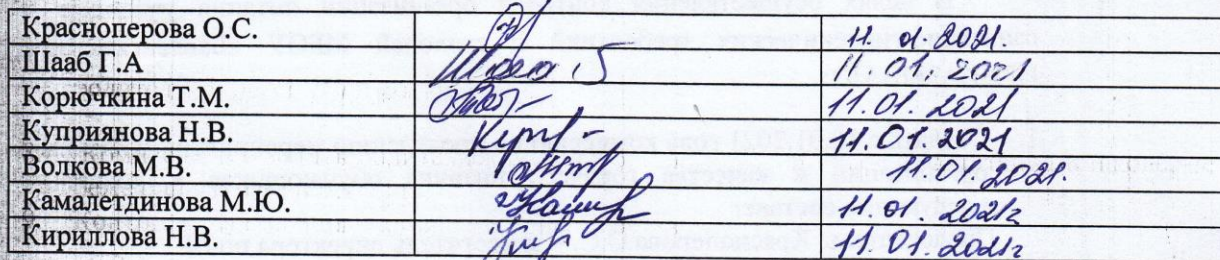 Красноперова О.С. 11.01.2021.
Шааб Г.А Шааб 11.01.2021
Корючкина Т.М. 11.01.2021
Куприянова Н.В. 11.01.2021
Волкова М.В. 11.01.2021.
Камалетдинова М.Ю. 11.01.2021г
Кириллова Н.В. 11.01.2021г